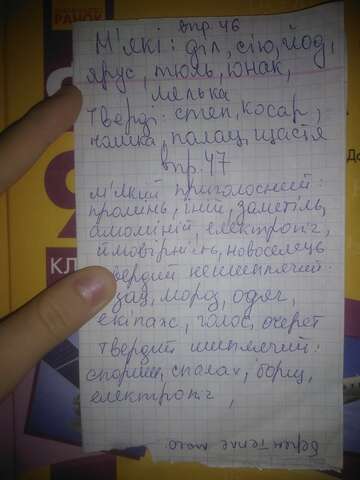 РАНОК
впр. 46
М'які: діл, сію, йод,
ярус, тюль, юнак,
лялька
Тверді: степ, косар,
палац, щастя
впр. 47
м'який приголосний:
промінь, іній, заметіль,
алюміній, електро
ймовірність, новоселець
твердий нешиплячий:
мороз, одяг,
екіпаж, голос, очерет
твердий шиплячий:
спориш, спалах, борщ,
електро